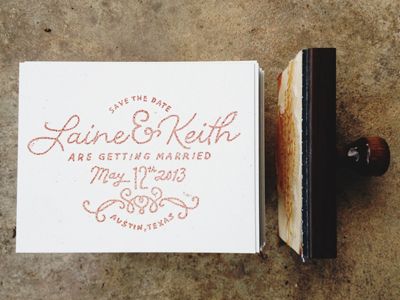 SAVE THE DATE
Laine & Keith
ARE GETTING MARRIED
May 12th 2013
AUSTIN, TEXAS